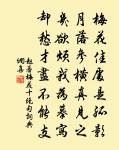 梅花佳處是孤影
月落參橫真見之
欲煩我為摹寫
却愁才盡不能支
趙蕃梅花十絕句詞典
網